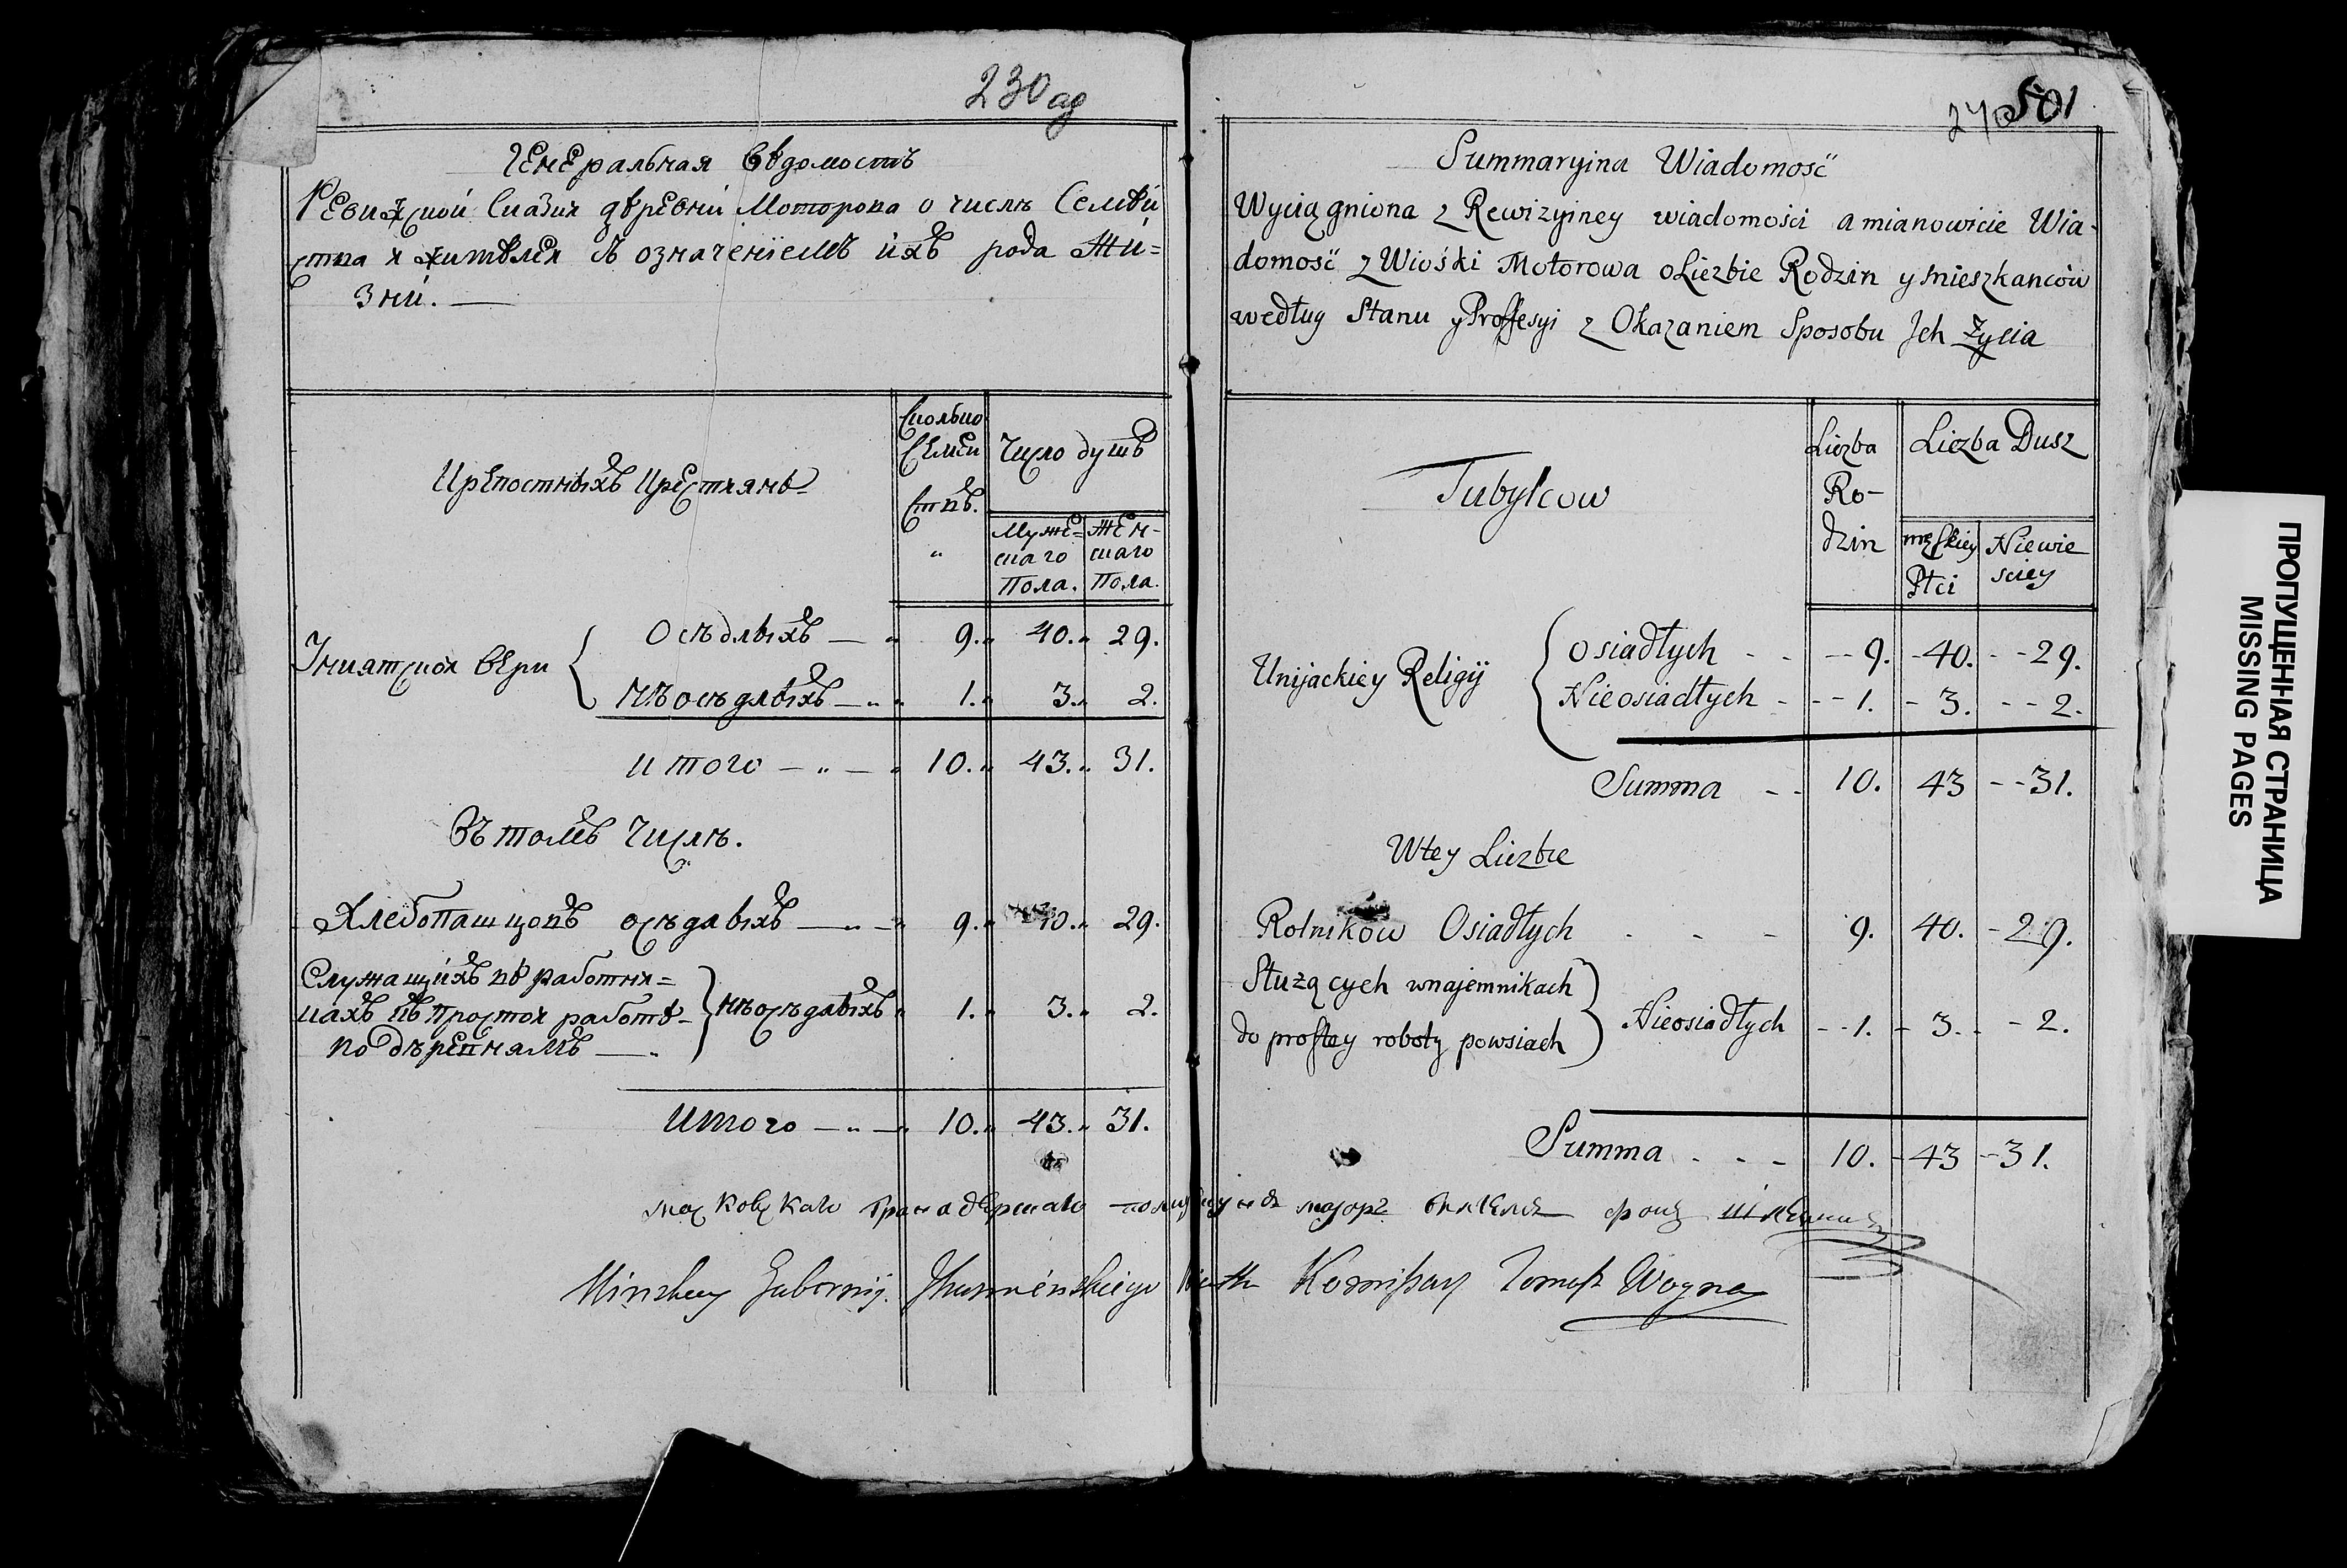 230 ад
Генеральная Вѣдомость
Ревижской Сказки дѣревни Моторова о числѣ Семѣй
ства и жителей съ означениемъ ихъ рода Жи=
зни. —
Крепостныхъ Крестиянъ
Сколько
Семей
ствъ.
Число душъ
Муже=
скаго
Пола.
Жен-
скаго
Пола.
Униятской Вери
Осѣдлыхъ — 9. 40. 29.
Неосѣдлыхъ — 1. 3. 2.
Итого — 10. 43. 31.
Въ томъ Числѣ.
Хлебопашцовъ осѣдлыхъ — 9. 40. 29.
Служащихъ въ работни=
кахъ въ простой работѣ
по дѣревнямъ —
неосѣдлыхъ 1. 3. 2.
Итого — 10. 43. 31.
501
Summaryina Wiadomość
Wyciągniona z Rewizyiney wiadomości a mianowicie Wia-
domość z Wiośki Motorowa o Liczbie Rodzin y mieszkanców
według Stanu y Proffesyi z Okazaniem Sposobu Jch Życia
Tubylcow
Liczba
Ro-
dzin
Liczba Dusz
męskiey
Płci
Niewie
sciey
Unijackiey Religij
Osiadłych - - 9. - 40. - - 29.
Nieosiadłych - - - 1. - 3. - - 2.
Summa - - 10. 43 - - 31.
W tey Liczbie
Rolników Osiadłych - - - 9. 40. - 29.
Służących w najemnikach
do prostey roboty po wsiach
Nieosiadłych - - 1. - 3. - - 2.
Summa - - - 10. - 43 - 31.
московскаго гранадерскаго полку маіоръ фонъ
Minskiey Gubernij Jhumenskiego Komissarz Tomasz Woyna
ПРОПУЩЕННАЯ СТРАНИЦА
MISSING PAGES